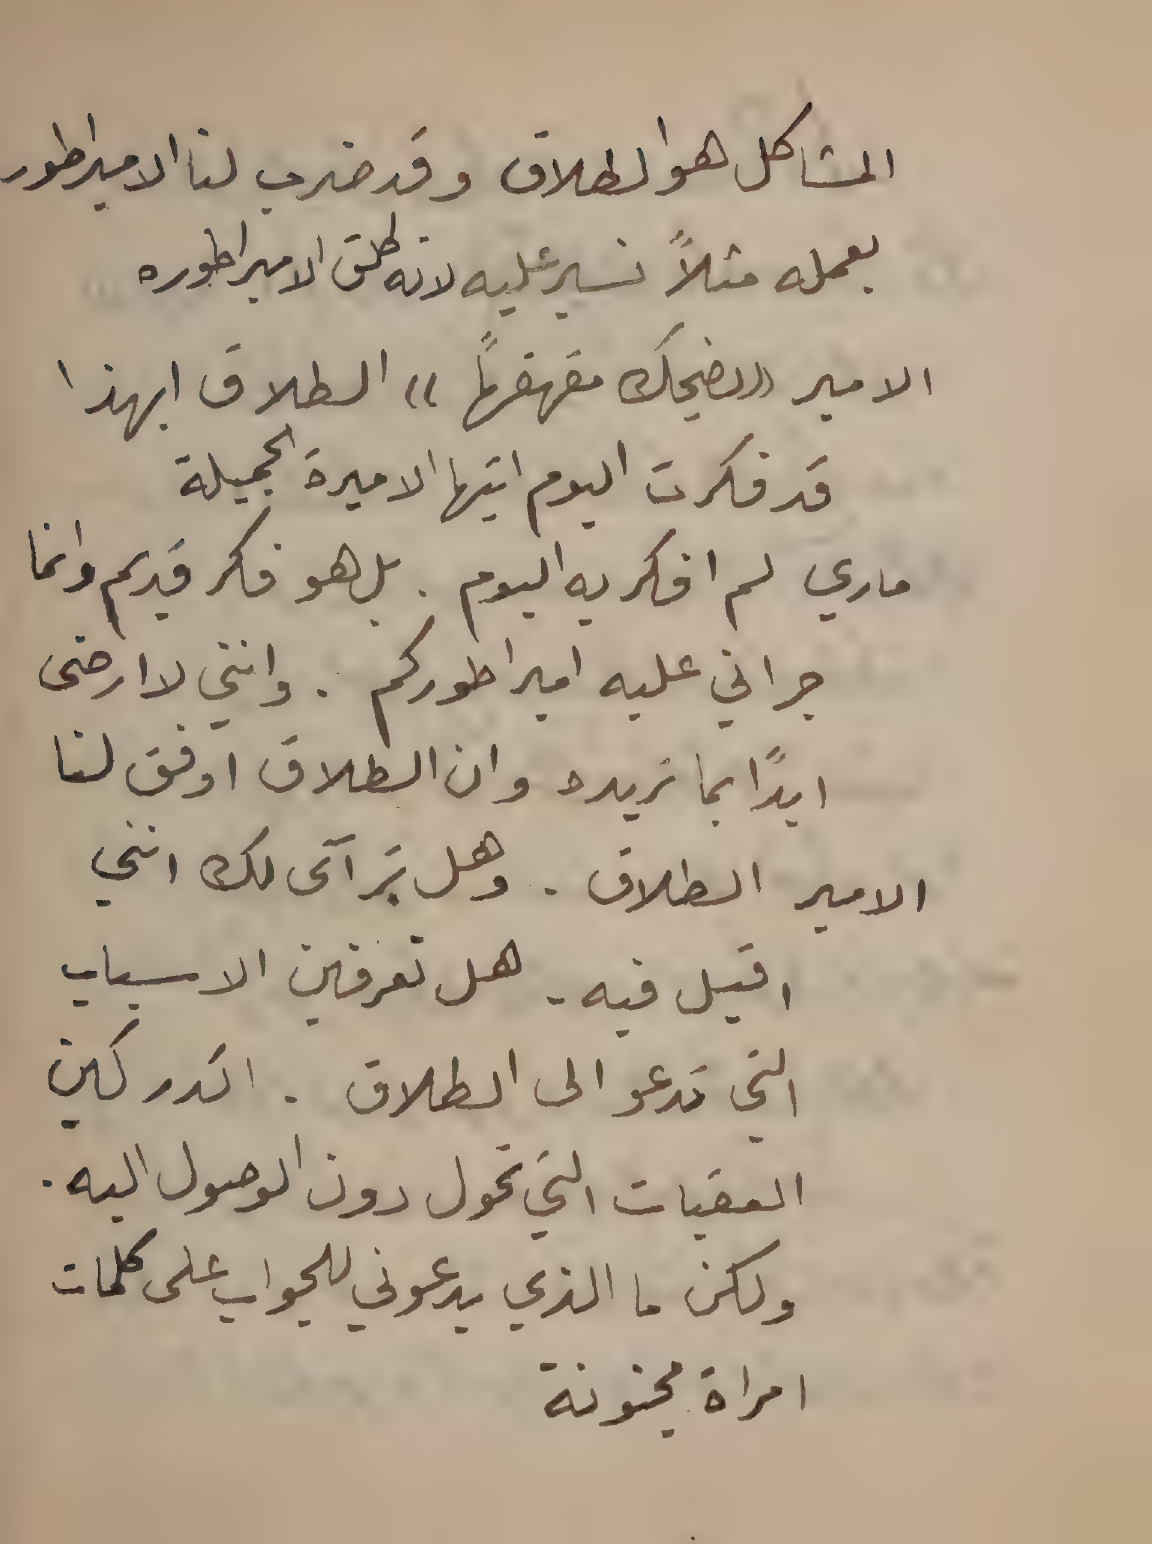 المشاكل هو الطلاق وقد ضرب لنا الامبراطور
بعمله مثلاً نسير عليه لانه طلق الامبراطوره
الامير «يضحك مقهقهاً» الطلاق ابهذا
قد فكرت اليوم ايتها الاميرة الجميلة
ماري لم افكر به اليوم . بل هو فكر قديم وانما
جراني عليه امبراطوركم . وانني لا ارضى
ابدًا بما تريده وان الطلاق اوفق لنا
الامير الطلاق . وهل يترآى لك انني
اقبل فيه . هل تعرفين الاسباب
التي تدعو الى الطلاق . اتدركين
العقبات التي تحول دون الوصول اليه .
ولكن ما الذي يدعوني للجواب على كلمات
امراة مجنونة